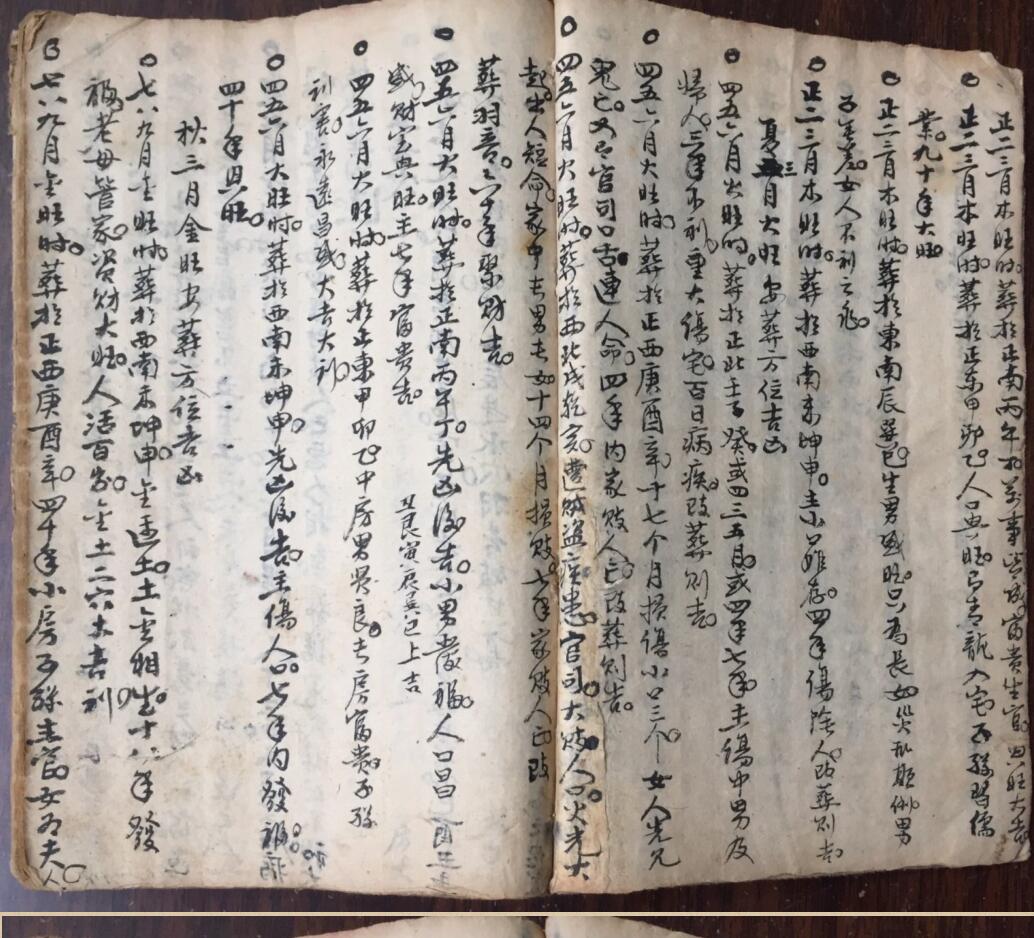 正二三月木旺時葬於正南丙午丁萬事皆成富貴生官田旺大吉
○正二三月木旺時葬於正東甲卯乙人口興旺引青龍入宅子孫習儒
業九十年大旺
○正二三月木旺時葬於東南辰巽巳生男盛旺只為長女災乱欺俐男
子妻產女人不利之兆
○正二三月木旺時葬於西南未坤申主小口难存四年傷陰人改葬則吉
夏三月火旺安葬方位吉凶
○四五六月火旺時葬於正北壬子癸或四三五月或四年七年主傷中男及
婦人三年不利重大傷宅百日病疾改葬則吉
○四五六月火旺時葬於正西庚酉辛十七个月損傷小口三个女人先見
鬼亡又引官司口舌連人命四年内家敗人亡改葬則吉
○四五六月火旺時葬於西北戌乾亥遭賊盜疾患官司大敗人口火光大
起出人短命家中长男长女十四个月損敗七年家敗人亡改
葬羽音六十年聚財吉
○四五六月火旺時葬於正南丙午丁先凶後吉小男發福人口昌
盛財宝興旺主七年富貴吉
丑艮寅辰巽巳上吉
○四五六月火旺時葬於正東甲卯乙中房男賢良长房富貴子孫
利害永遠昌盛大吉大利
○四五六月火旺時葬於西南未坤申先凶後吉主傷人口七年内發福
四十年興旺
秋三月金旺安葬方位吉凶
○七八九月金旺時葬於西南未坤申金逢土土金相生十八年發
福老母管家資財大旺人活百岁金土二六大吉利
○七八九月金旺時葬於正西庚酉辛四十年小房子孫主官女為夫人